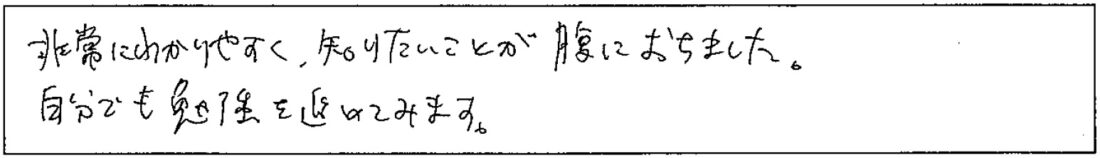 非常にわかりやすく、知りたいことが腹におちました。
自分でも勉強を進めてみます。